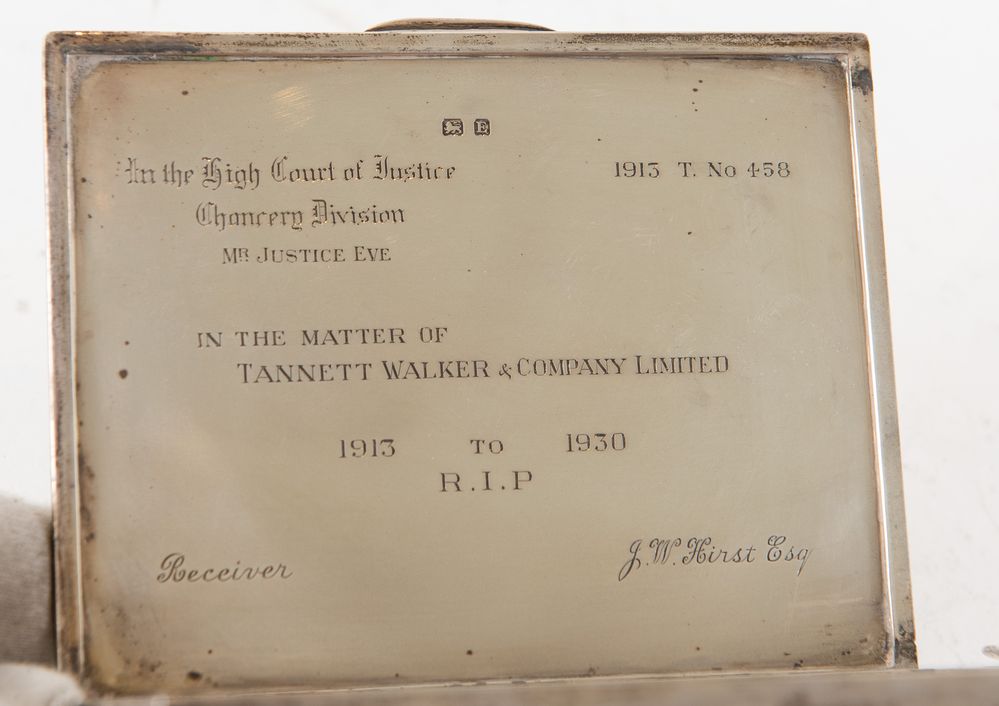 E
In the High Court of Justice 1913 T. No 458
Chancery Division
MR JUSTICE EVE
IN THE MATTER OF
TANNETT WALKER & COMPANY LIMITED
1913 TO 1930
R.I.P
Receiver J.W. Hirst Esq